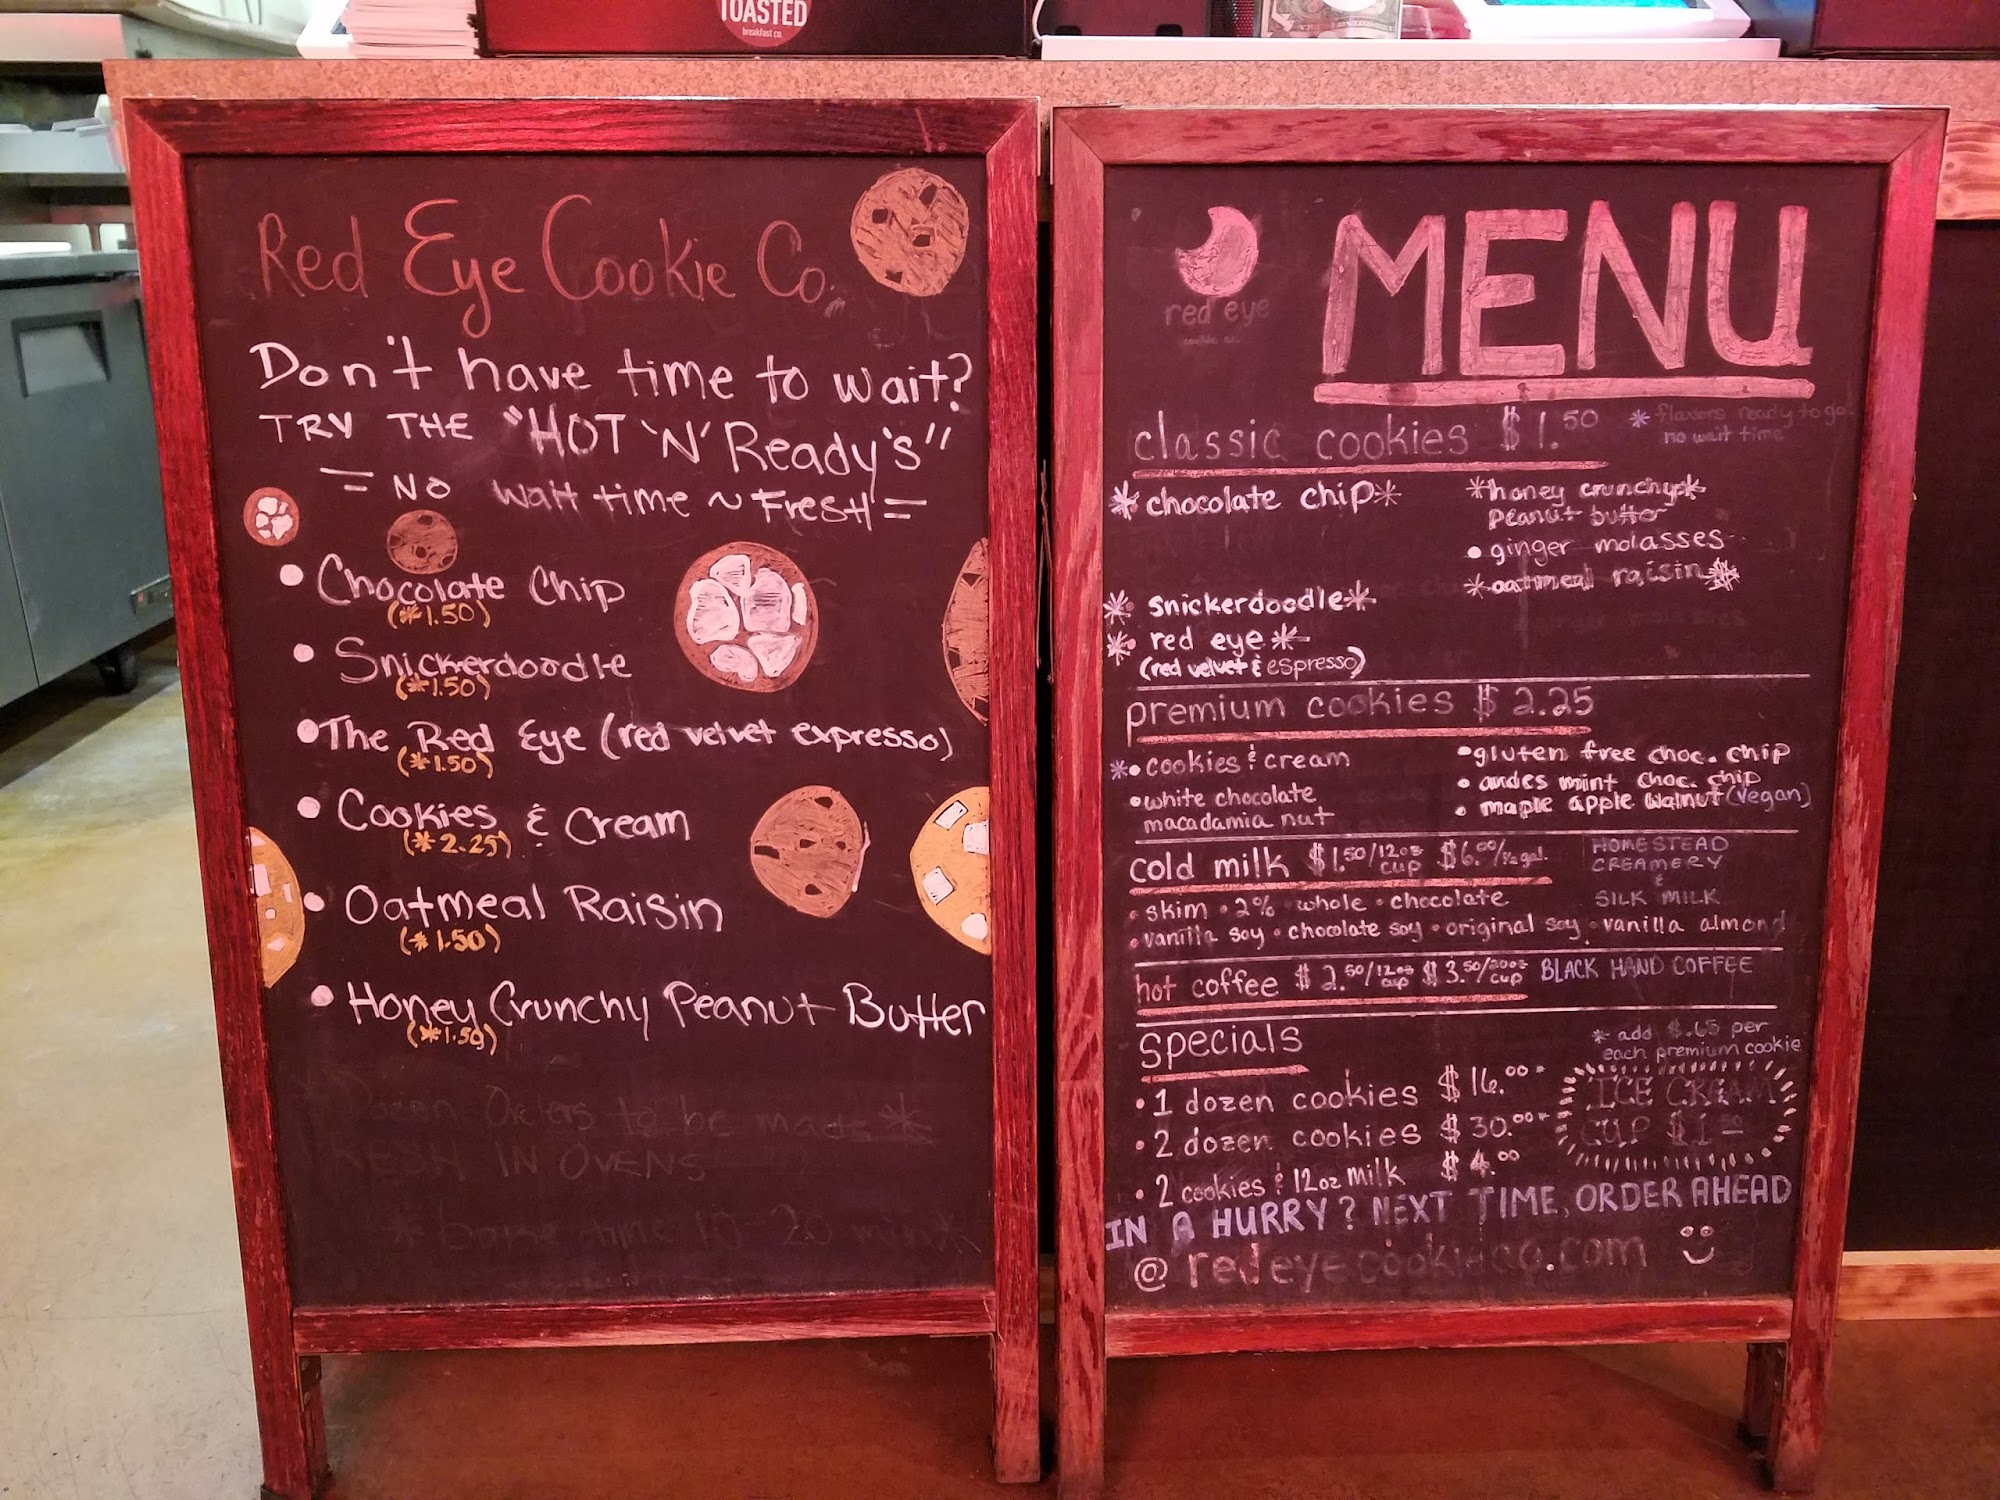 TOASTED
breakfast co.
Red Eye Cookie Co.
Don't have time to wait?
TRY THE "HOT 'N' Ready's"
= NO wait time ~ FRESH =
• Chocolate Chip
(*1.50)
• Snickerdoodle
(*1.50)
• The Red Eye (red velvet expresso)
(*1.50)
• Cookies & Cream
(*2.25)
• Oatmeal Raisin
(*1.50)
• Honey Crunchy Peanut Butter
(*1.50)
Dozen Orders to be made *
FRESH IN OVENS
* bake time 10-20 min *
red eye
cookie co.
MENU
classic cookies $1.50
* flavors ready to go!
no wait time
* chocolate chip *
* snickerdoodle *
* red eye *
(red velvet & espresso)
* honey crunchy *
peanut butter
• ginger molasses
* oatmeal raisin *
premium cookies $2.25
* • cookies & cream
• white chocolate
macadamia nut
• gluten free choc. chip
• andes mint choc. chip
• maple apple walnut (vegan)
cold milk $1.50/12oz cup $6.00/½ gal.
HOMESTEAD
CREAMERY
&
SILK MILK
• skim • 2% • whole • chocolate
• vanilla soy • chocolate soy • original soy • vanilla almond
hot coffee $2.50/12oz cup $3.50/20oz cup BLACK HAND COFFEE
specials
* add $.65 per
each premium cookie
• 1 dozen cookies $16.00 *
• 2 dozen cookies $30.00 *
• 2 cookies & 12oz milk $4.00
ICE CREAM
CUP $1.50
IN A HURRY? NEXT TIME, ORDER AHEAD
@ redeyecookieco.com